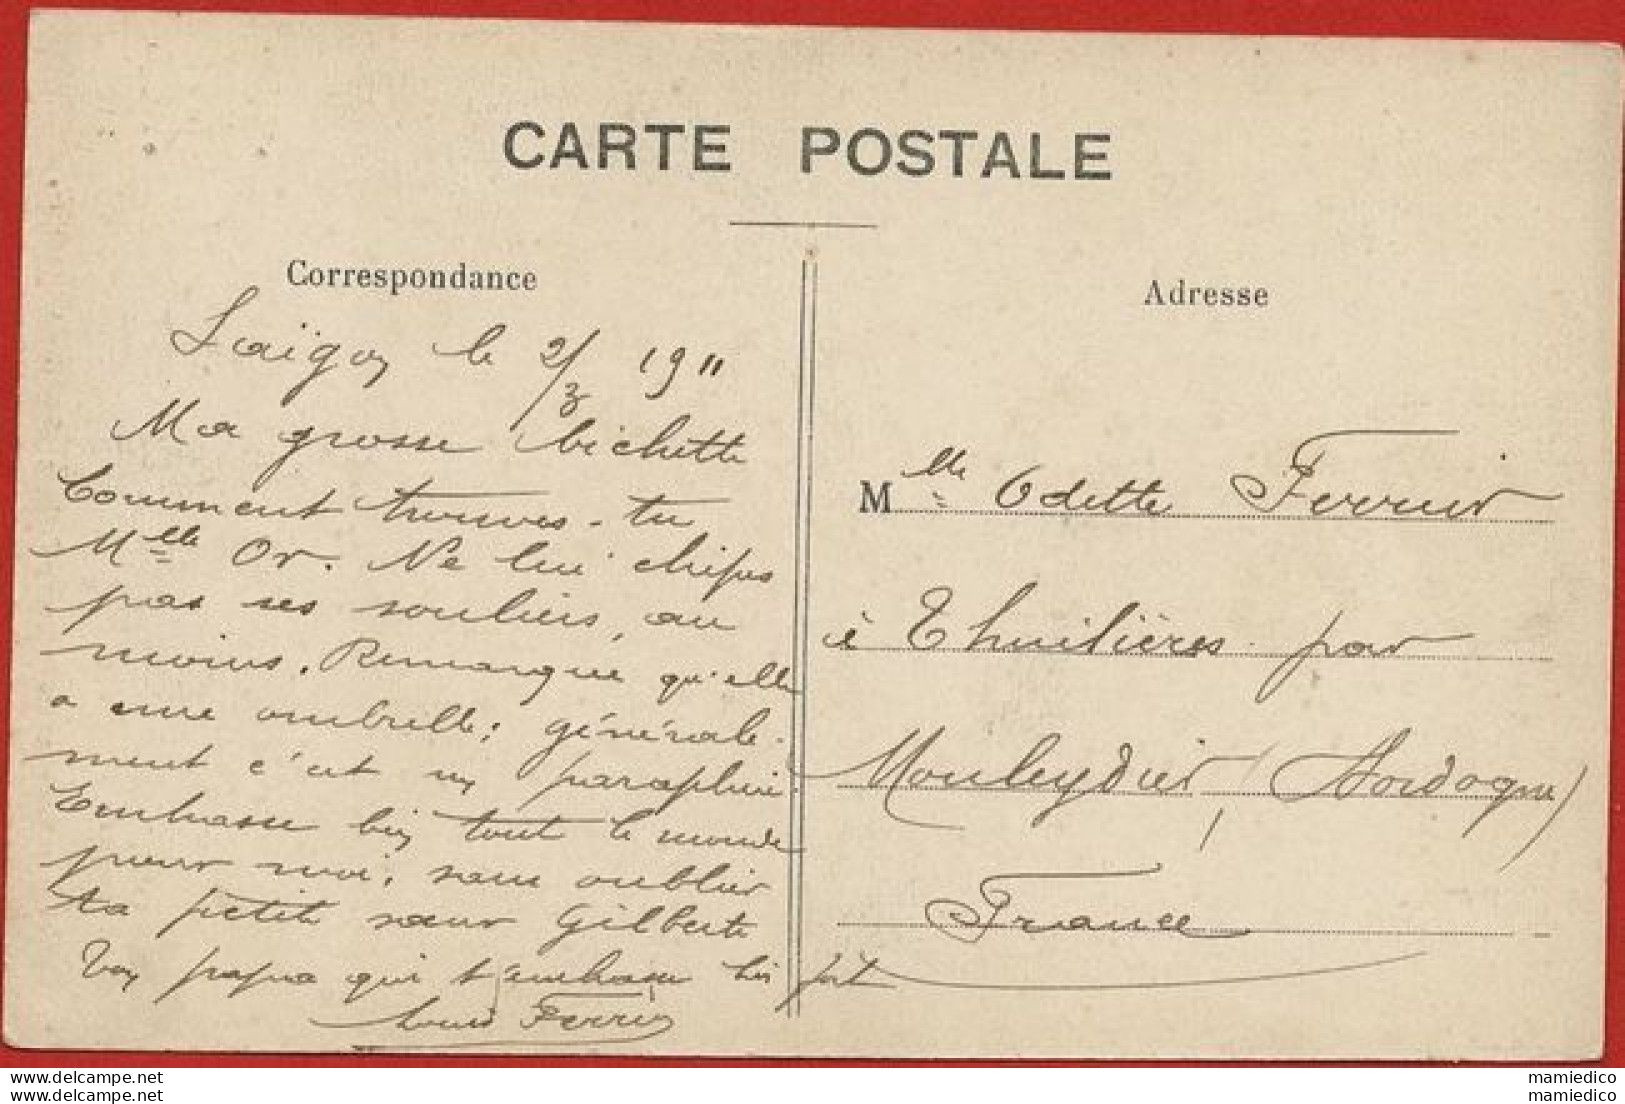 CARTE POSTALE
Correspondance
Saïgon le 2/3 1911
Ma grosse bichette
Comment trouves-tu
Mlle Or. Ne lui chipes
pas ses souliers, au
moins. Remarque qu'elle
a une ombrelle; générale-
ment c'est un parapluie.
Embrasse bien tout le monde
pour moi, sans oublier
ta petite sœur Gilberte
Ton papa qui t'embrasse bien fort
Louis
Adresse
Mlle Odette
à Thuilières par
Mouleydier, (Dordogne)
France
mamiedico
mamiedico
mamiedico
mamiedico